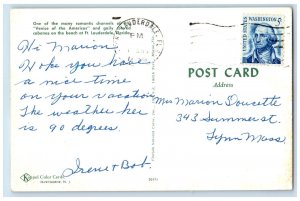 One of the many romantic channels in the
"Venice of the Americas" and gaily colored
cabanas on the beach at Ft. Lauderdale, Florida.
LAUDERDALE
PM
UNITED STATES
WASHINGTON
5c
Hi Marion
Hope you have
a nice time
on your vacation
The weather her
is 90 degrees.
Irene + Bob.
POST CARD
Address
Mrs Marion Doucette
343 Summer st.
Lynn Mass.
Koppel Color Cards
Hawthorne, N. J.